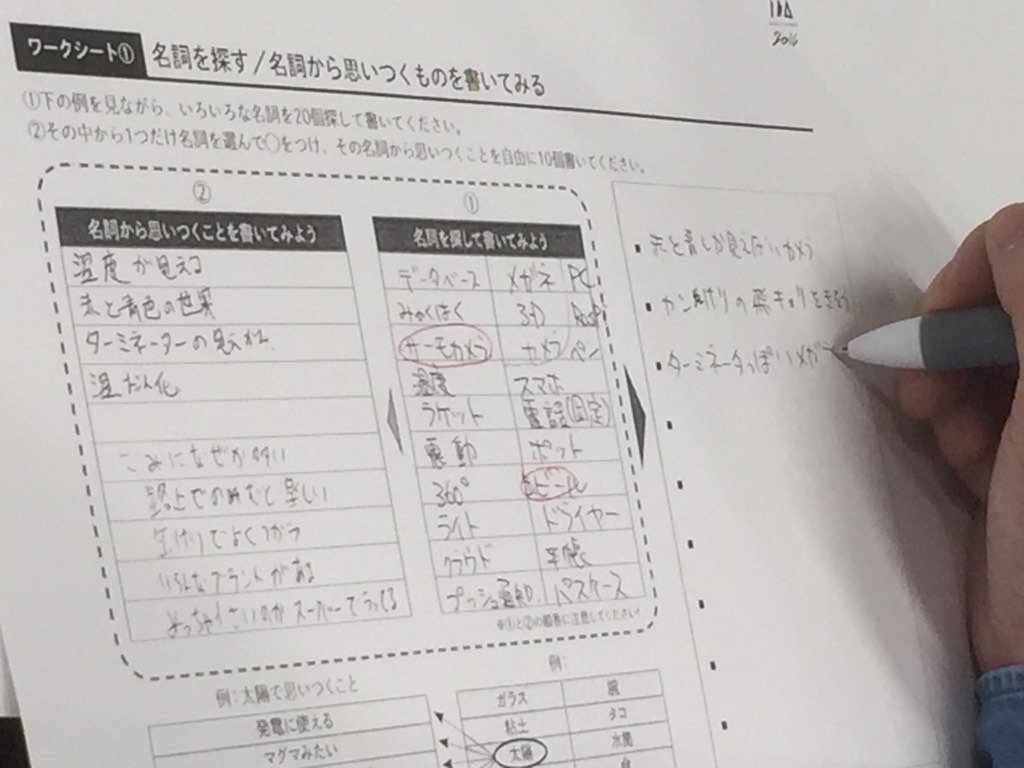 2016
ワークシート① 名詞を探す/名詞から思いつくものを書いてみる
①下の例を見ながら、いろいろな名詞を20個探して書いてください。
②その中から1つだけ名詞を選んで○をつけ、その名詞から思いつくことを自由に10個書いてください。
②
名詞から思いつくことを書いてみよう
温度が見える
赤と青色の世界
ターミネーターの見え方
温だん化
路上でのむと楽しい
いろんなブランドがある
①
名詞を探して書いてみよう
データベース メガネ PC
みゃくはく 3D
サーモカメラ カメラ ペン
温度 スマホ
ラケット 電話(固定)
震動 ポット
360° ビール
ライト ドライヤー
クラウド 手帳
プッシュ通知 パスケース
※①と②の順番に注意してください!
・赤と青しか見えないカメラ
・カン蹴りの
・ターミネータっぽいメガ
例:太陽で思いつくこと
発電に使える
マグマみたい
例:
ガラス 腕
粘土 タコ
太陽 水筒